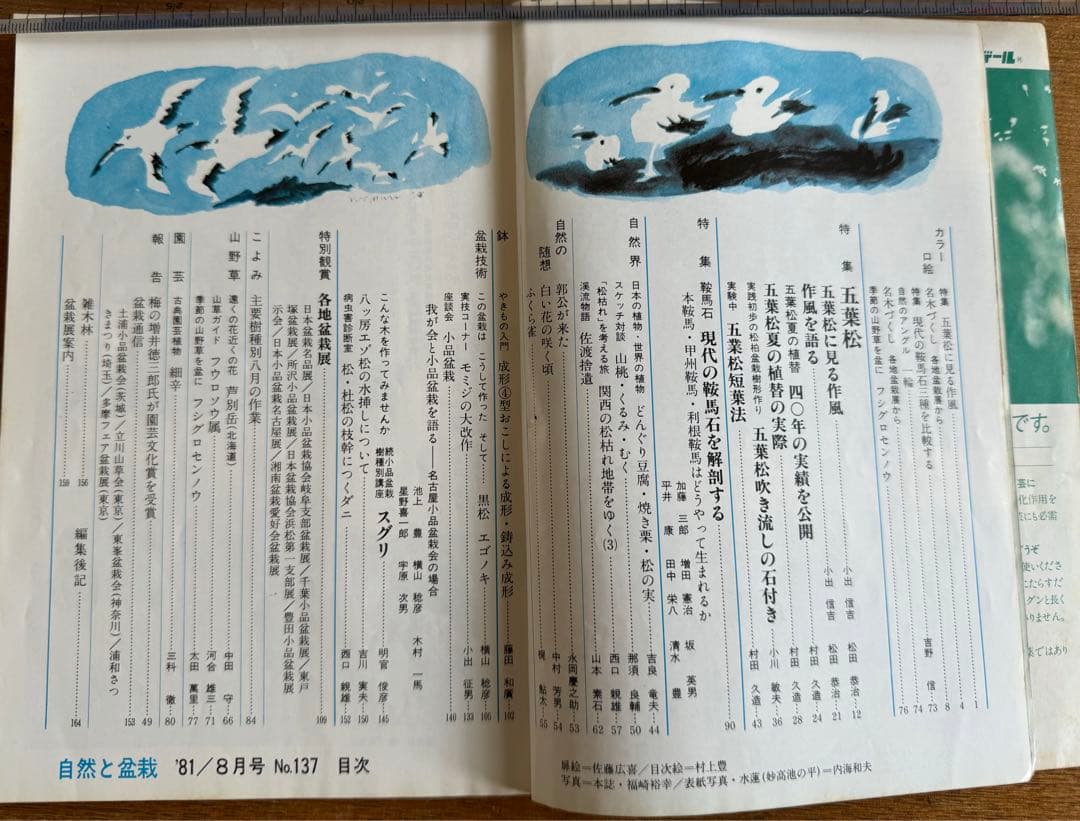 カラー口絵
特集 五葉松に見る作風 1
名木づくし 各地盆栽展から 4
特集 現代の鞍馬石三種を比較する 8
自然のアングル 一輪 吉野 信 73
名木づくし 各地盆栽展から 74
季節の山野草を盆に フシグロセンノウ 76
特集 五葉松
五葉松に見る作風 小出 信吉 松田 恭治 12
作風を語る 小出 信吉 松田 恭治 21
五葉松夏の植替 四〇年の実績を公開 村田 久造 24
五葉松夏の植替の実際 村田 久造 28
実践初歩の松柏盆栽樹形作り 五葉松吹き流しの石付き 小川 敏夫 36
実験中 五業松短葉法 村田 久造 43
特集 鞍馬石 現代の鞍馬石を解剖する 90
本鞍馬・甲州鞍馬・利根鞍馬はどうやって生まれるか
加藤 三郎 増田 憲治 坂 英男
平井 康 田中 栄八 清水 豊
自然界
日本の植物・世界の植物 どんぐり豆腐・焼き栗・松の実 吉良 竜夫 44
スケッチ対談 山桃・くるみ・むく 那須 良輔 50
「松枯れ」を考える旅 関西の松枯れ地帯をゆく(3) 西口 親雄 57
渓流物語 佐渡捨遺 山本 素石 62
自然の随想
郭公が来た 永岡慶之助 53
白い花の咲く頃 中村 芳男 54
ふくら雀 梶 鮎太 55
鉢 やきもの入門 成形④型おこしによる成形・鋳込み成形 藤田 和廣 102
盆栽技術
この盆栽は こうして作った そして…… 黒松 エゴノキ 横山 稔彦 106
実技コーナー モミジの大改作 小出 征男 133
座談会 小品盆栽 140
我が会と小品盆栽を語る――名古屋小品盆栽会の場合
池上 豊 横山 稔彦 木村 一馬
星野喜一郎 宇原 次男
こんな木を作ってみませんか 続小品盆栽樹種別講座 スグリ 明官 俊彦 145
八ッ房エゾ松の水挿しについて 吉川 実夫 150
病虫害診断室 松・杜松の枝幹につくダニ 西口 親雄 152
特別観賞 各地盆栽展 109
日本盆栽名品展/日本小品盆栽協会岐阜支部盆栽展/千葉小品盆栽展/東戸
塚盆栽展/所沢小品盆栽展/日本盆栽協会浜松第一支部展/豊田小品盆栽展
示会/日本小品盆栽名古屋展/湘南盆栽愛好会盆栽展
こよみ 主要樹種別八月の作業 84
山野草
遠くの花近くの花 芦別岳(北海道) 中田 守 66
山草ガイド フウロソウ属 河合 雄三 71
季節の山野草を盆に フシグロセンノウ 太田 萬里 77
園芸 古典園芸植物 細辛 三科 徹 80
報告 梅の増井徳三郎氏が園芸文化賞を受賞 49
盆栽通信 153
土浦小品盆栽会(茨城)/立川山草会(東京)/東峯盆栽会(神奈川)/浦和さつ
きまつり(埼玉)/多摩フェア盆栽展(東京)
雑木林 156
盆栽展案内 159
編集後記 164
扉絵=佐藤広喜/目次絵=村上豊
写真=本誌・福崎裕幸/表紙写真・水蓮(妙高池の平)=内海和夫
自然と盆栽 '81/8月号 No.137 目次
デール®
です。